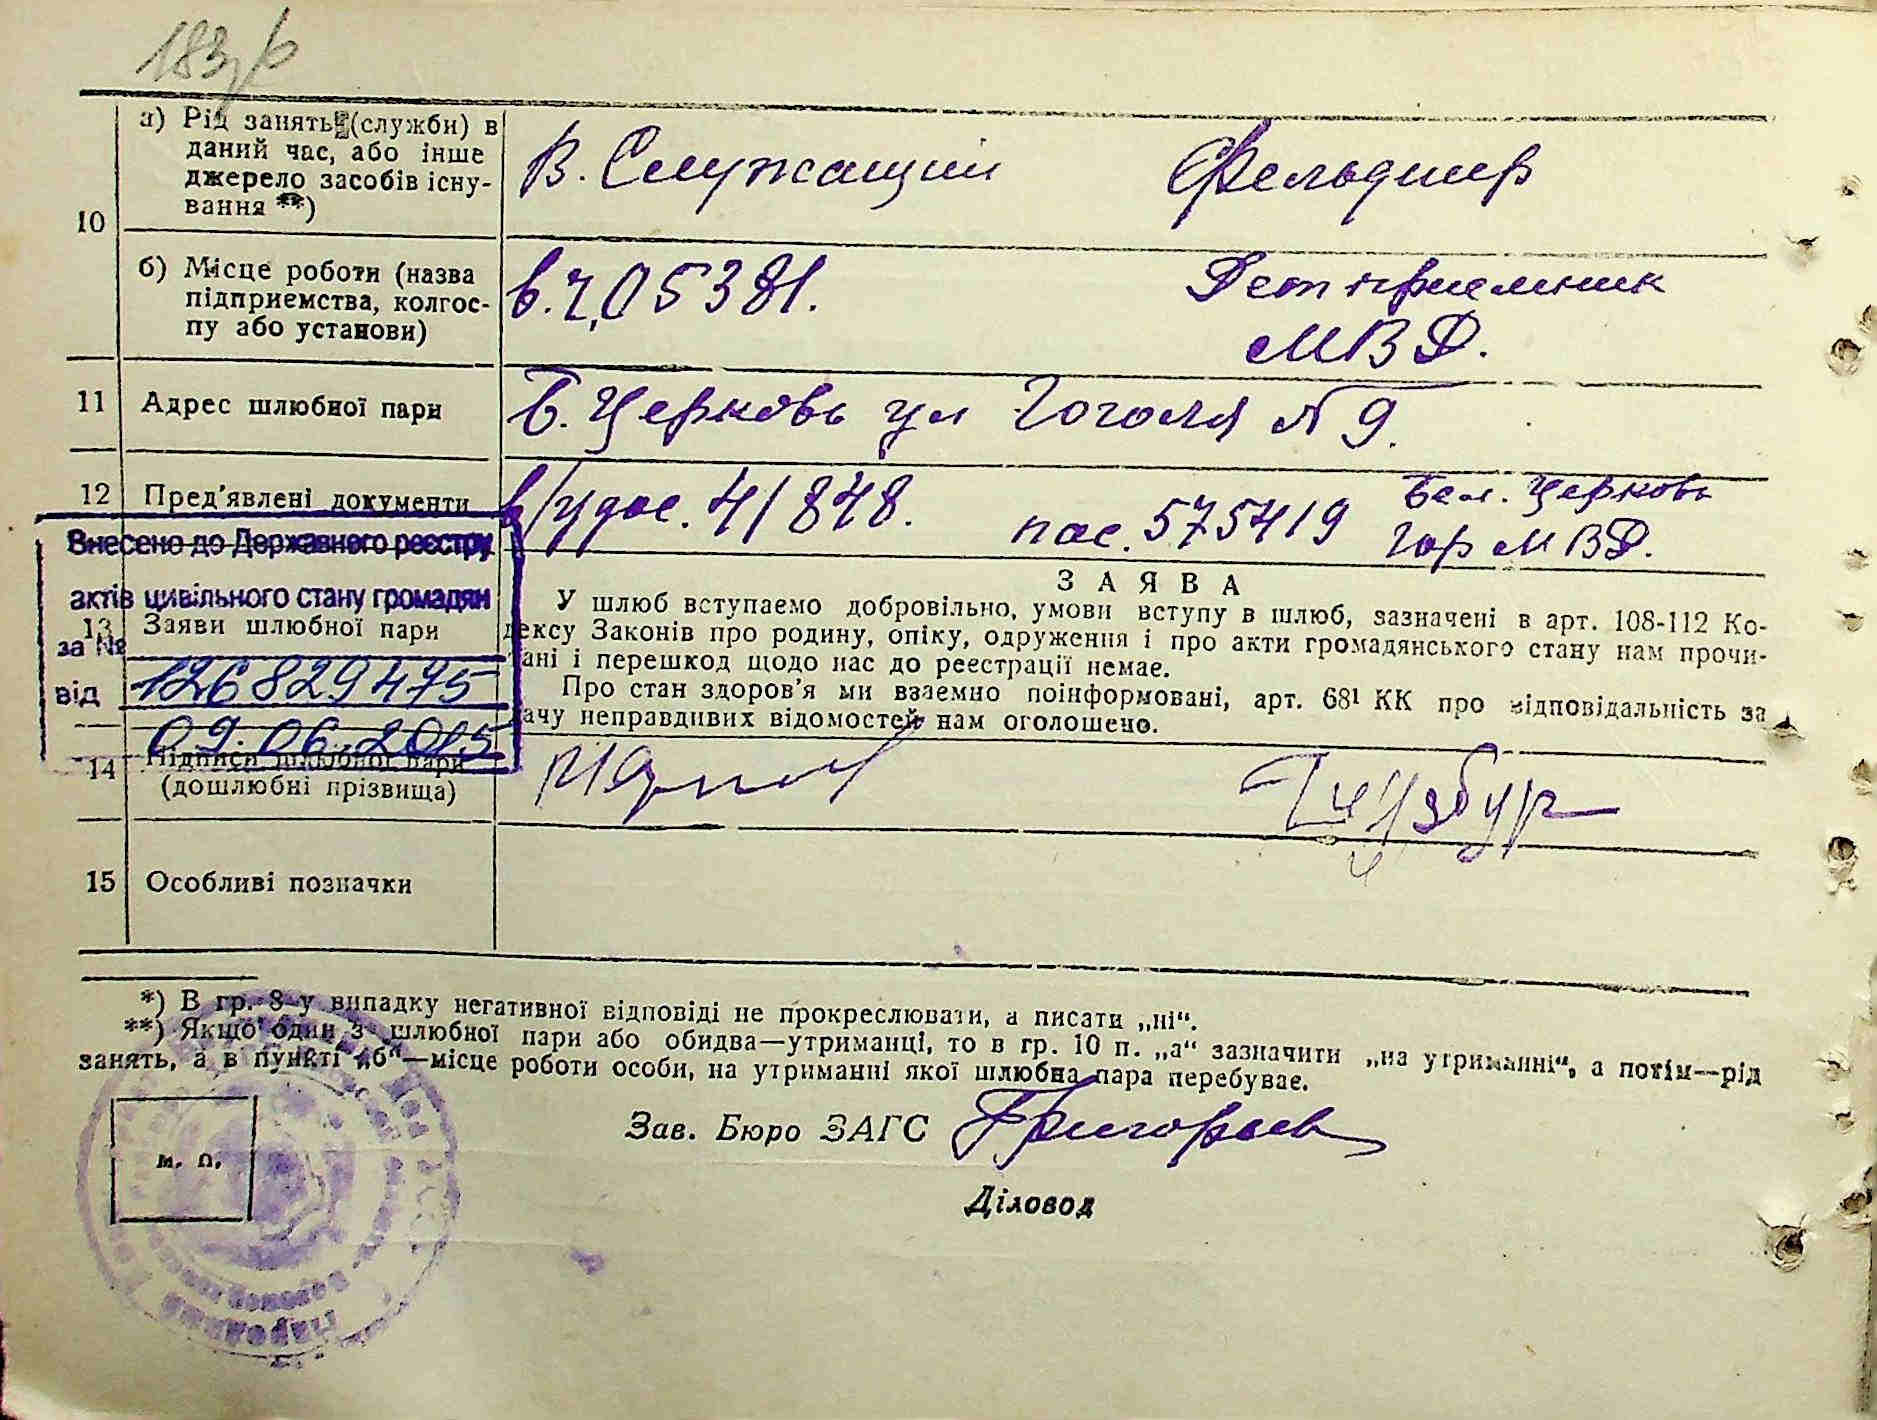 183
10
а) Рід занять (служби) в
даний час, або інше
джерело засобів існу-
вання **)
В. Служащий
Фельдшер
б) Місце роботи (назва
підприємства, колгос-
пу або установи)
в.ч. 05381.
Детприемник
МВД.
11 Адрес шлюбної пари
Б. Церковь ул Гоголя № 9.
12 Пред'явлені документи
в/удос. 41848.
пас. 575419
Бел. Церковь
Гор МВД.
Внесено до Державного реєстру
актів цивільного стану громадян
за №
126829475
від
09.06.2015
13 Заяви шлюбної пари
ЗАЯВА
У шлюб вступаємо добровільно, умови вступу в шлюб, зазначені в арт. 108-112 Ко-
дексу Законів про родину, опіку, одруження і про акти громадянського стану нам прочи-
тані і перешкод щодо нас до реєстрації немає.
Про стан здоров'я ми взаємно поінформовані, арт. 68¹ КК про відповідальність за
дачу неправдивих відомостей нам оголошено.
14 Підписи шлюбної пари
(дошлюбні прізвища)
15 Особливі позначки
*) В гр. 8 у випадку негативної відповіді не прокреслювати, а писати „ні“.
**) Якщо один з шлюбної пари або обидва—утриманці, то в гр. 10 п. „а“ зазначити „на утриманні“, а потім—рід
занять, а в пункті „б“—місце роботи особи, на утриманні якої шлюбна пара перебуває.
м. п.
Зав. Бюро ЗАГС Григорьев
Діловод